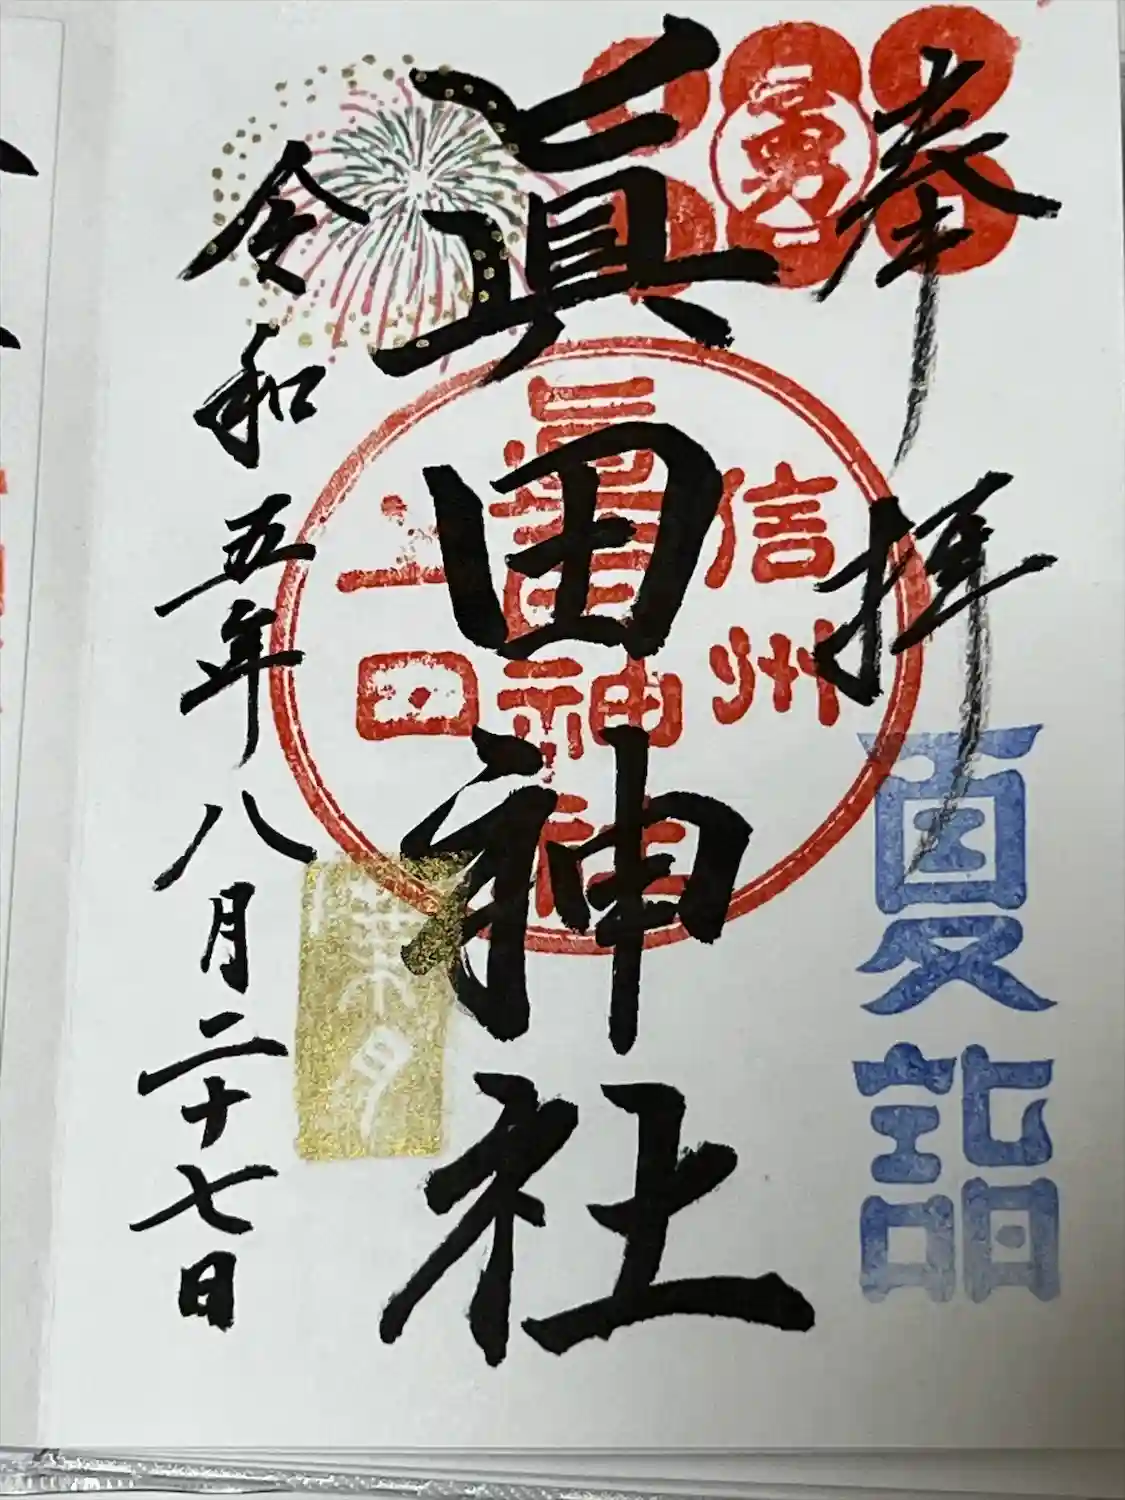 奉拝
夏詣
勇
眞田神社
信州
眞田神社
上田
令和五年八月二十七日
葉月